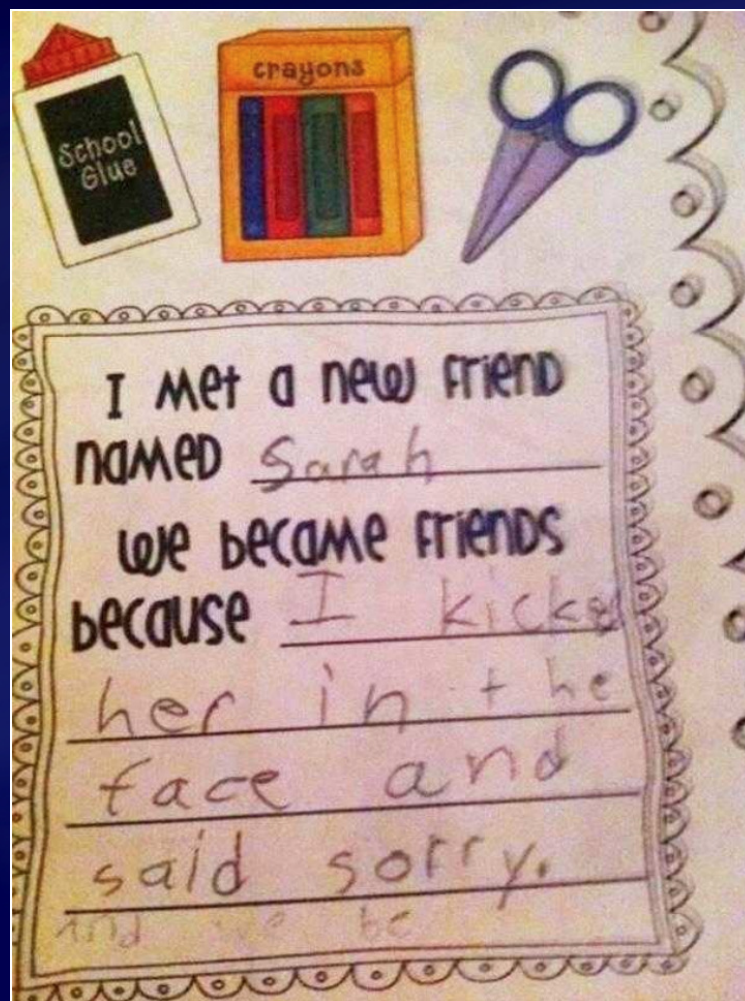 School
Glue
crayons
I met a new friend
named Sarah
We became friends
because I kicked
her in the
face and
said sorry.
And we be